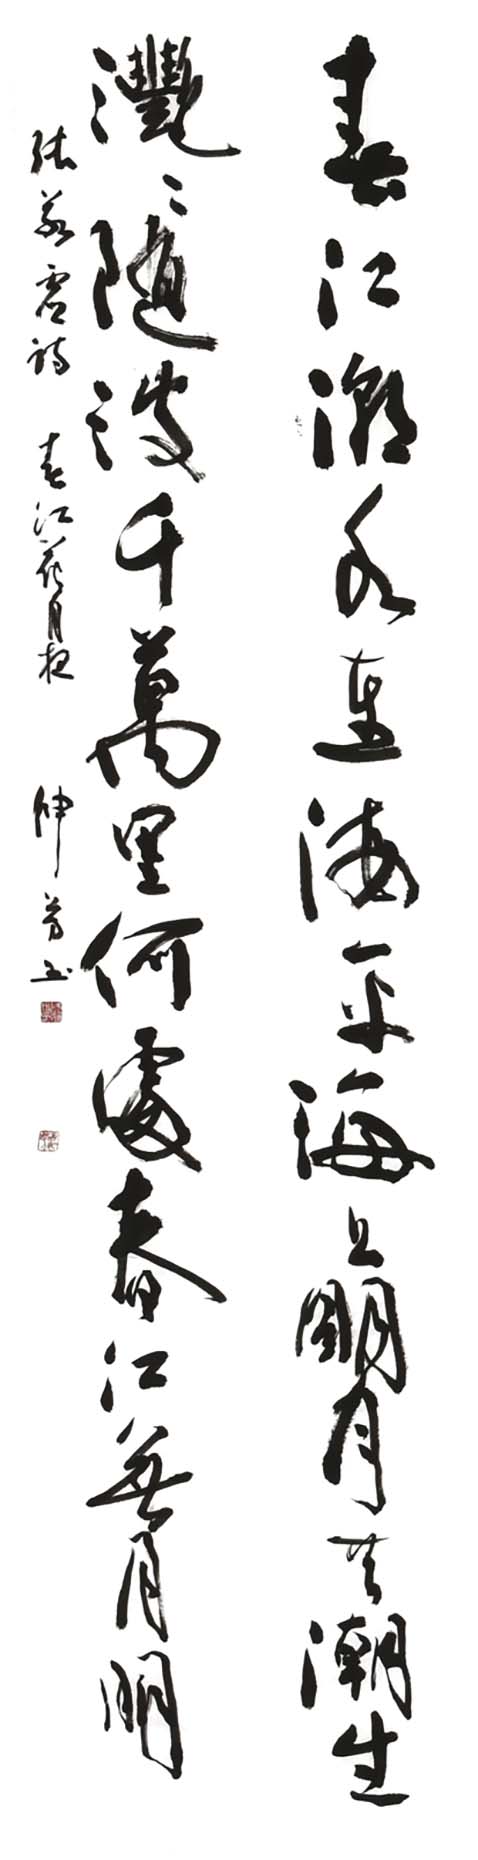 春江潮水連海平海上明月共潮生
灧々隨波千萬里何處春江無月明
張若虛詩 春江花月夜